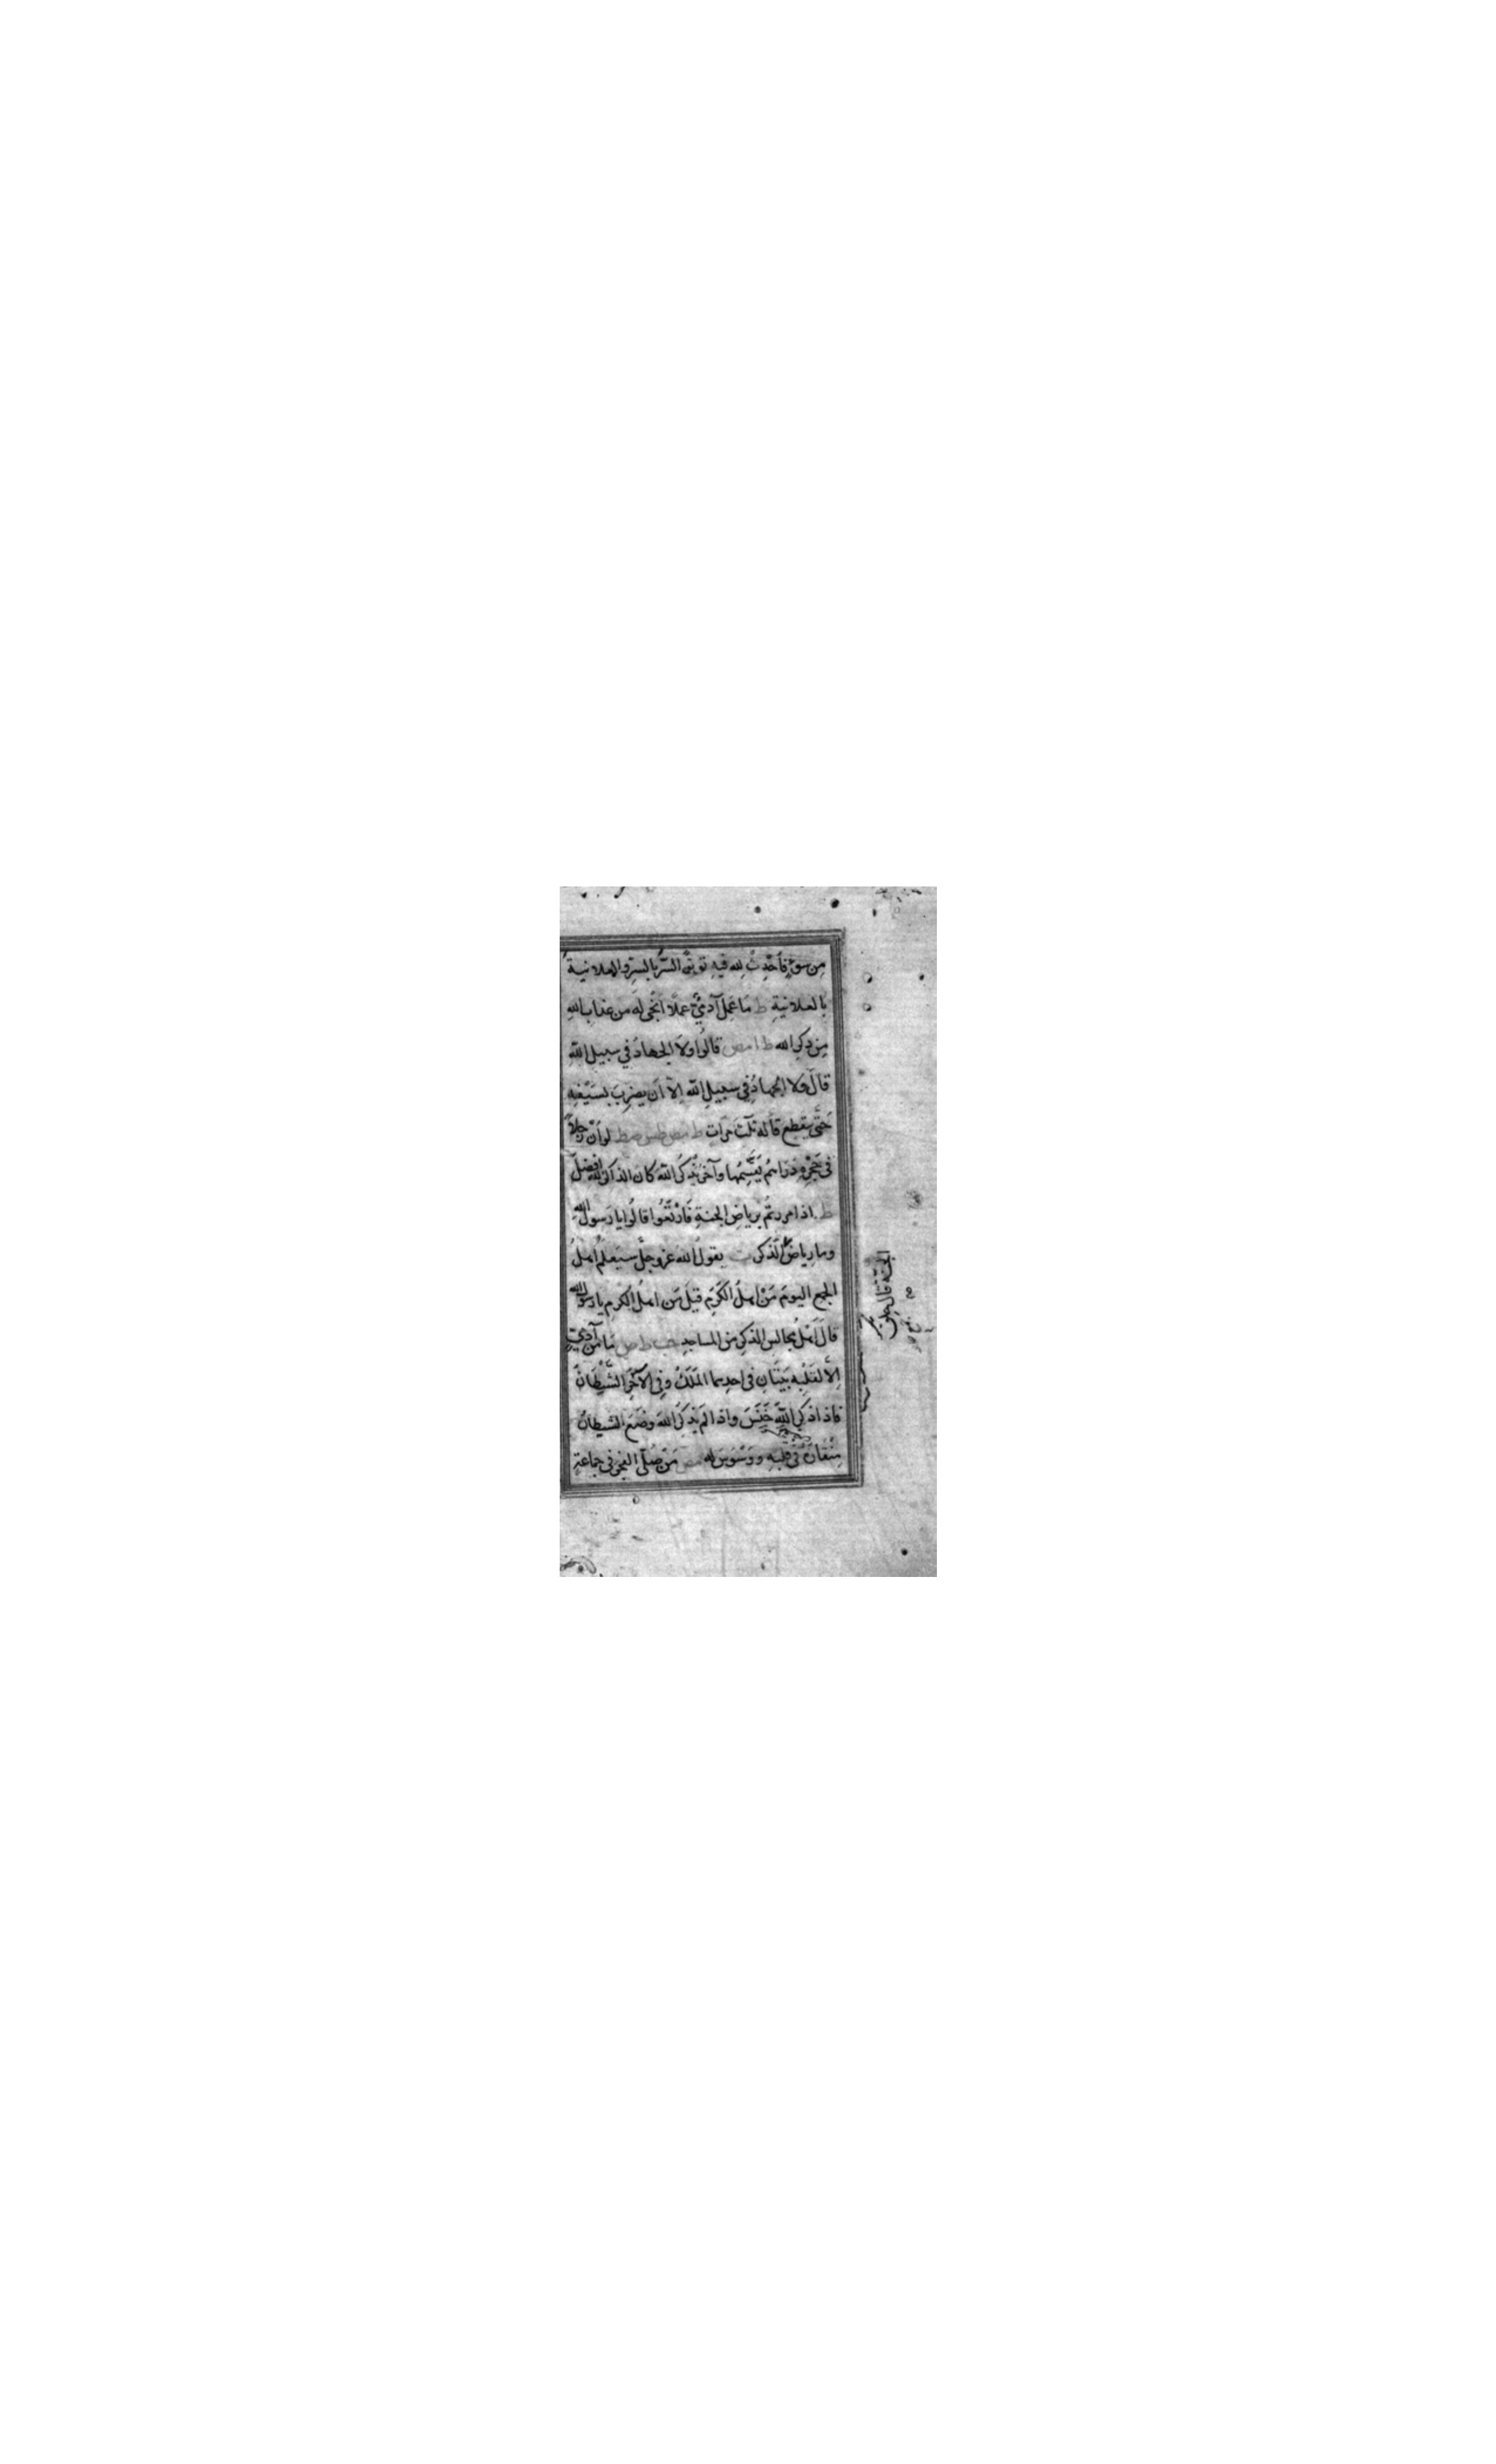 مِن سوءٍ فَأحْدِثْ لِلّه فيهِ توبةً السِّرُّ بالسِّرِّ والعلانيةُ
بالعلانيةِ ط مَا عَمِلَ آدميٌّ عملًا أنْجٰى لَه من عذابِ اللهِ
مِن ذِكرِ الله ط ا مص قالُوا ولَا الجهادُ في سبيلِ اللهِ
قالَ ولا الجهادُ في سبيلِ الله اِلّا اَن يضرِبَ بسَيْفِهِ
حَتّٰى ينقطع قاله ثلٰثَ مراتٍ ط مص طس صط لو اَنّ رجلاً
في حَجْرِهِ دَرَاهمُ يُقَسِّمُها وآخرُ يَذْكرُ اللهَ كانَ الذاكرُ لله افضلَ
ط اذا مررتُم بِرياضِ الجنةِ فَارْتَعُوا قالُوا يا رَسولَ الله
وما رِياضُ الذكرِ ت يقولُ الله عز وجلّ سيَعلمُ اهلُ
الجمع اليومَ مَنْ اهلُ الكَرَمِ قيلَ مَن اهلُ الكرمِ يا رسولَ الله
قالَ اهْلُ مجالسِ الذكرِ من المساجدِ حب ط ص مَا من آدميٍّ
اِلّا لقلبِه بَيْتَانِ في احدِهما المَلَكُ وفي الآخَرِ الشَّيْطَانُ
فاذا ذكرَ اللّٰهَ خَنَسَ واذا لَم يَذكرِ اللهَ وضَعَ الشيطانُ
مِنْقَارَهُ في قلبِهِ ووَسْوَسَ له مص مَن صَلّٰى الفجرَ في جماعةٍ
الجنة قال حلق